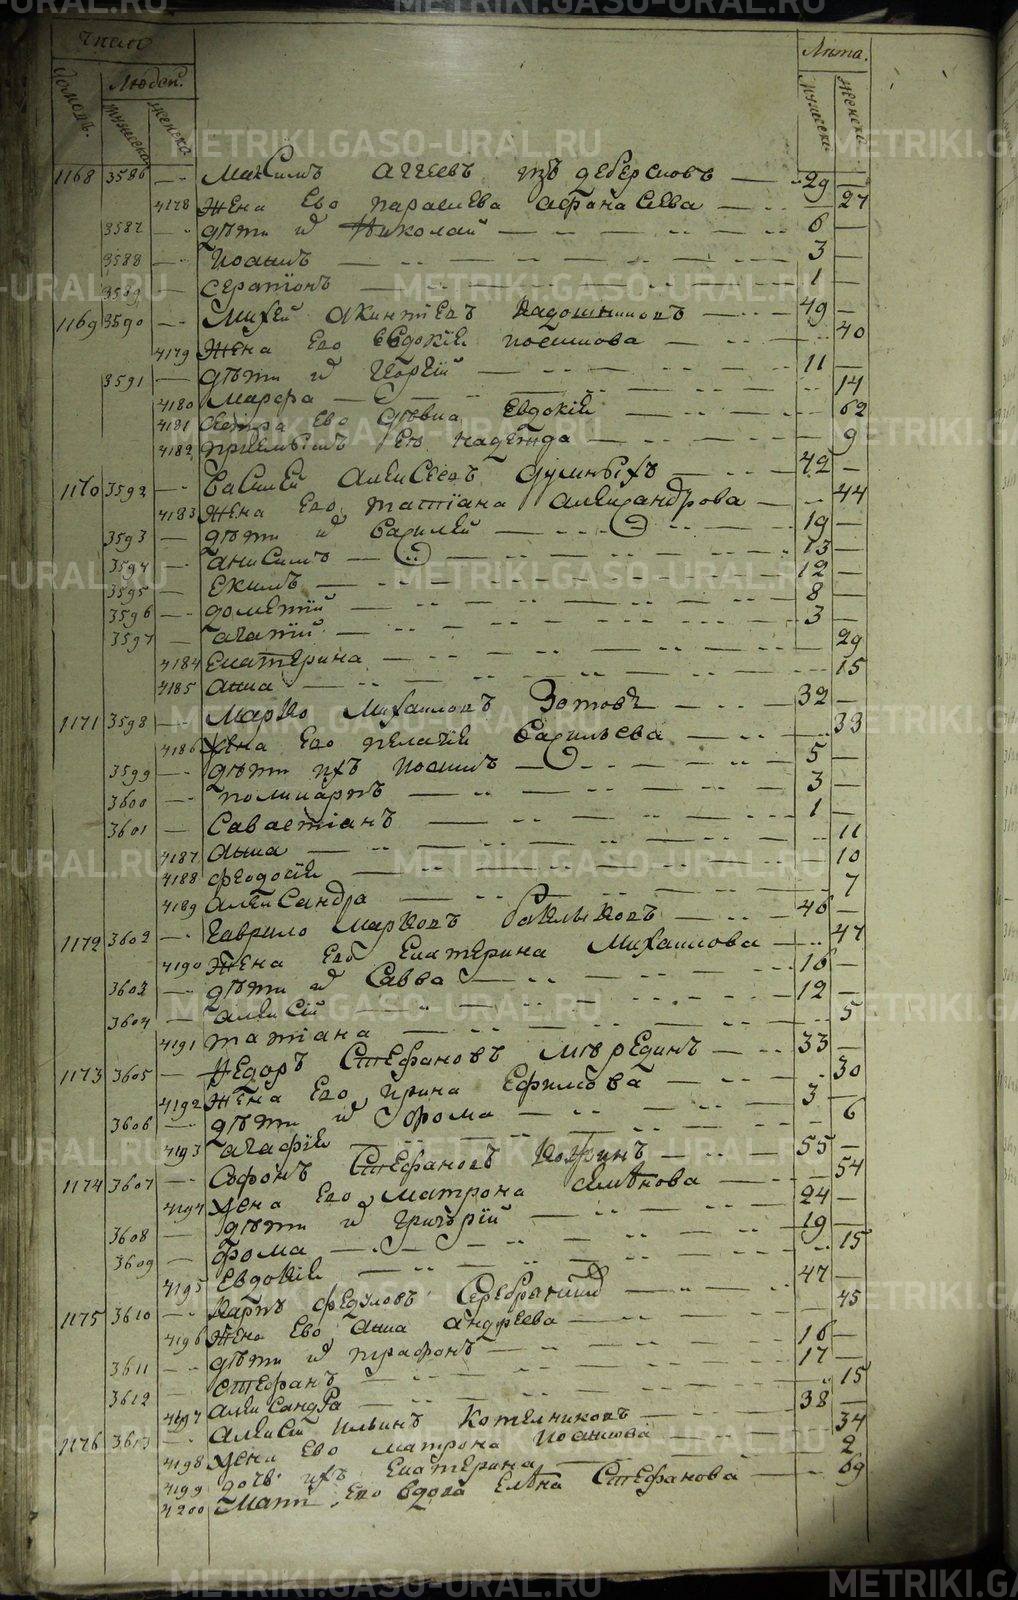 METRIKI.GASO-URAL.RU
Число Лѣта.
Домовъ. Людей. Мужеска Женска Мужеска Женска
1168 3586 — Максимъ Аггеевъ изъ деберсиовъ — 29 —
4178 жена Ево параскева афонасиева — 27
3587 — дѣти их Николай — 6 —
3588 — Иоаннъ — 3 —
3589 — серапионъ — 1 —
1169 3590 — Михей Акинтиевъ Кадошниковъ — 49 —
4179 Жена Ево Евдокия посникова — 40
3591 — дѣти их Георгий — 11 —
4180 Марфа — 14
4181 сестра Ево девица Евдокия — 62
4182 приемышъ Ею надежда — 9
1170 3592 — Василей Алексеевъ Сулиныхъ — 42 —
4183 жена Ево татиана александрова — 44
3593 — дѣти их Василей — 19 —
3594 — анисимъ — 13 —
3595 — Екимъ — 12 —
3596 — дометий — 8 —
3597 — агапий — 3 —
4184 Екатерина — 29
4185 анна — 15
1171 3598 — Марко Михаиловъ Зотовъ — 32 —
4186 жена Ево пелагия Васильева — 33
3599 — дѣти ихъ Иоаннъ — 5 —
3600 — поликарпъ — 3 —
3601 — Савастианъ — 1 —
4187 анна — 11
4188 феодосия — 10
4189 александра — 7
1172 3602 — Гаврило Марковъ бакыковъ — 46 —
4190 жена Ево Екатерина Михаилова — 47
3603 — дѣти их Савва — 16 —
3604 — алексий — 12 —
4191 татиана — 5
1173 3605 — Федоръ Стефановъ Мередитъ — 33 —
4192 жена Ево ирина Ефимова — 30
3606 — дѣти их Фома — 3 —
4193 агафия — 6
1174 3607 — Софонъ Стефановъ — 55 —
4194 жена Ево матрона семенова — 54
3608 — дѣти их григорий — 24 —
3609 — фома — 19 —
4195 Евдокия — 15
1175 3610 — Карпъ федуловъ Серебрянний — 47 —
4196 жена Ево анна андреева — 45
3611 — дѣти их трифонъ — 16 —
3612 — стефанъ — 17 —
4197 александра — 15
1176 3613 — алексий ильинъ Котелниковъ — 38 —
4198 жена Ево матрона иоаннова — 34
4199 дочь ихъ Екатерина — 2
4200 Мати Ево вдова Елена Стефанова — 69